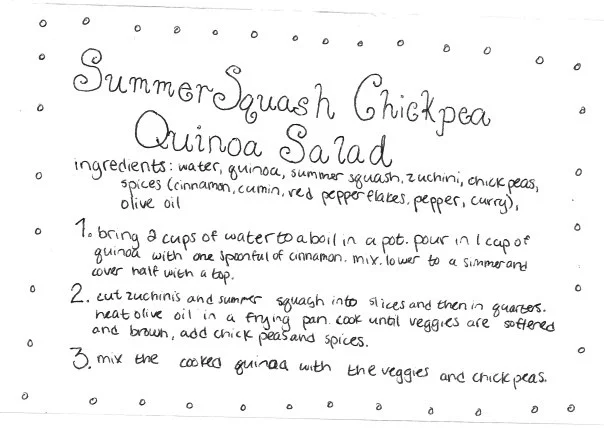 Summer Squash Chickpea
Quinoa Salad
ingredients: water, quinoa, summer squash, zuchini, chick peas,
spices (cinnamon, cumin, red pepper flakes, pepper, curry),
olive oil
1. bring 2 cups of water to a boil in a pot. pour in 1 cup of
quinoa with one spoonful of cinnamon. mix. lower to a simmer and
cover half with a top.
2. cut zuchinis and summer squash into slices and then in quarters.
heat olive oil in a frying pan. cook until veggies are softened
and brown, add chick peas and spices.
3. mix the cooked quinoa with the veggies and chick peas.